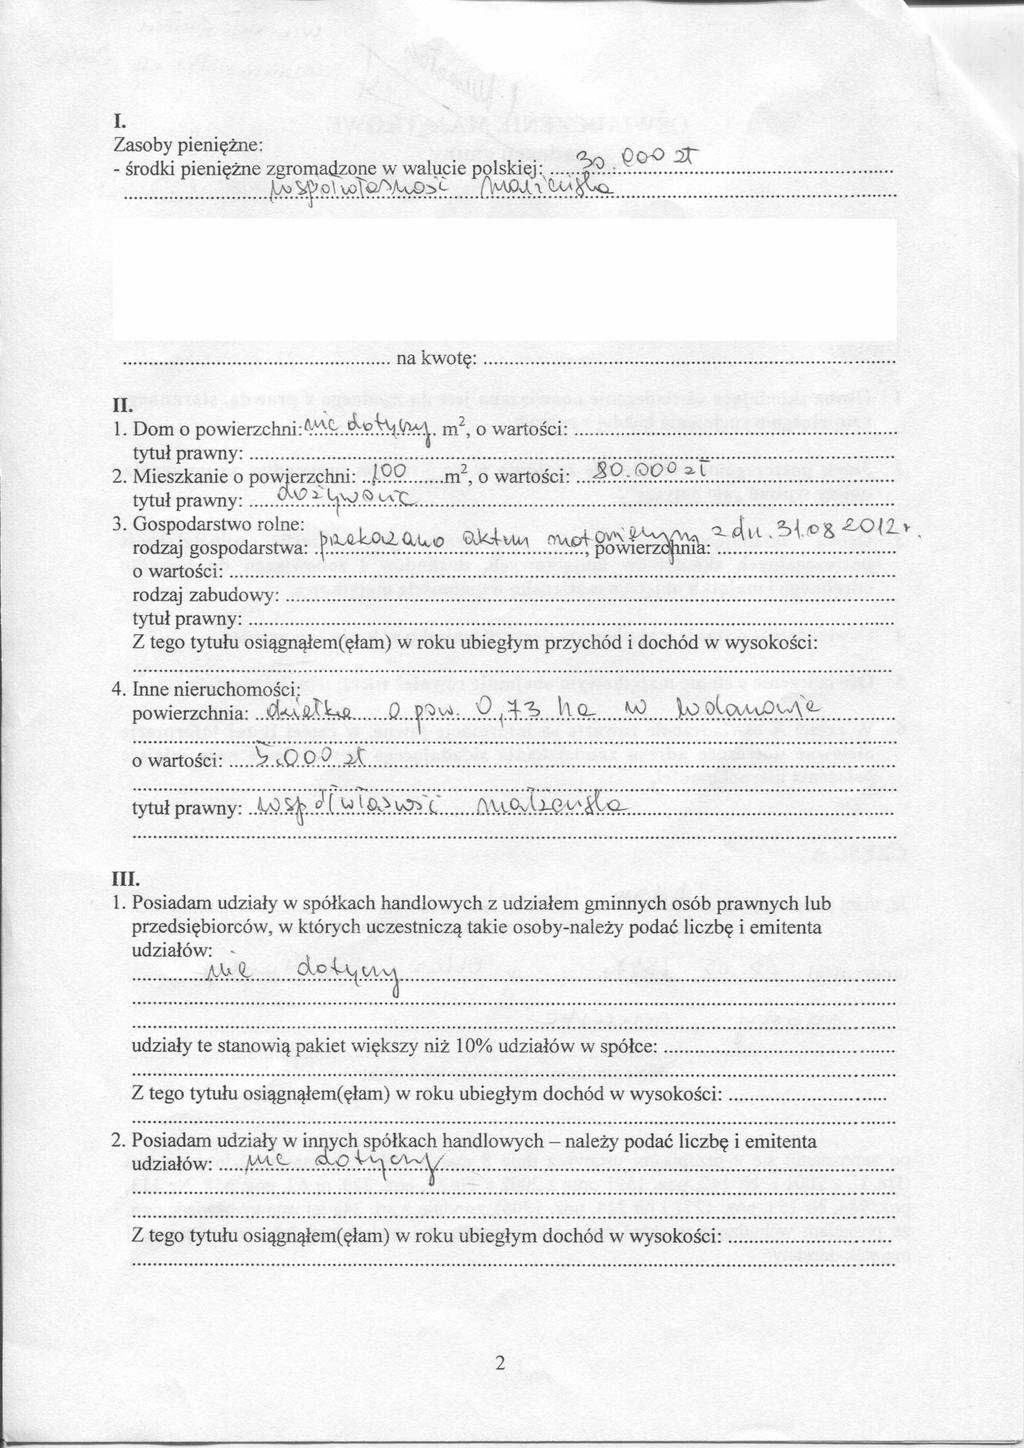 I.
Zasoby pieniężne:
- środki pieniężne zgromadzone w walucie polskiej: ......30.000 zł......
......współwłasność małżeńska......
...... na kwotę: ......
II.
1. Dom o powierzchni: nie dotyczy. m², o wartości: ......
tytuł prawny: ......
2. Mieszkanie o powierzchni: ..100......m², o wartości: ...80.000 zł......
tytuł prawny: ....dożywocie......
3. Gospodarstwo rolne:
rodzaj gospodarstwa: .przekazano aktem notarialnym z dn. 31.08 2012 r., powierzchnia: ......
o wartości: ......
rodzaj zabudowy: ......
tytuł prawny: ......
Z tego tytułu osiągnąłem(ęłam) w roku ubiegłym przychód i dochód w wysokości:
......
4. Inne nieruchomości:
powierzchnia: ..działka o pow. 0,73 ha w
......
o wartości: ....5.000 zł......
......
tytuł prawny: ..współwłasność małżeńska......
......
III.
1. Posiadam udziały w spółkach handlowych z udziałem gminnych osób prawnych lub
przedsiębiorców, w których uczestniczą takie osoby-należy podać liczbę i emitenta
udziałów:
......nie dotyczy......
......
......
udziały te stanowią pakiet większy niż 10% udziałów w spółce: ......
......
Z tego tytułu osiągnąłem(ęłam) w roku ubiegłym dochód w wysokości: ......
......
2. Posiadam udziały w innych spółkach handlowych – należy podać liczbę i emitenta
udziałów: ....nie dotyczy......
......
......
Z tego tytułu osiągnąłem(ęłam) w roku ubiegłym dochód w wysokości: ......
......
2